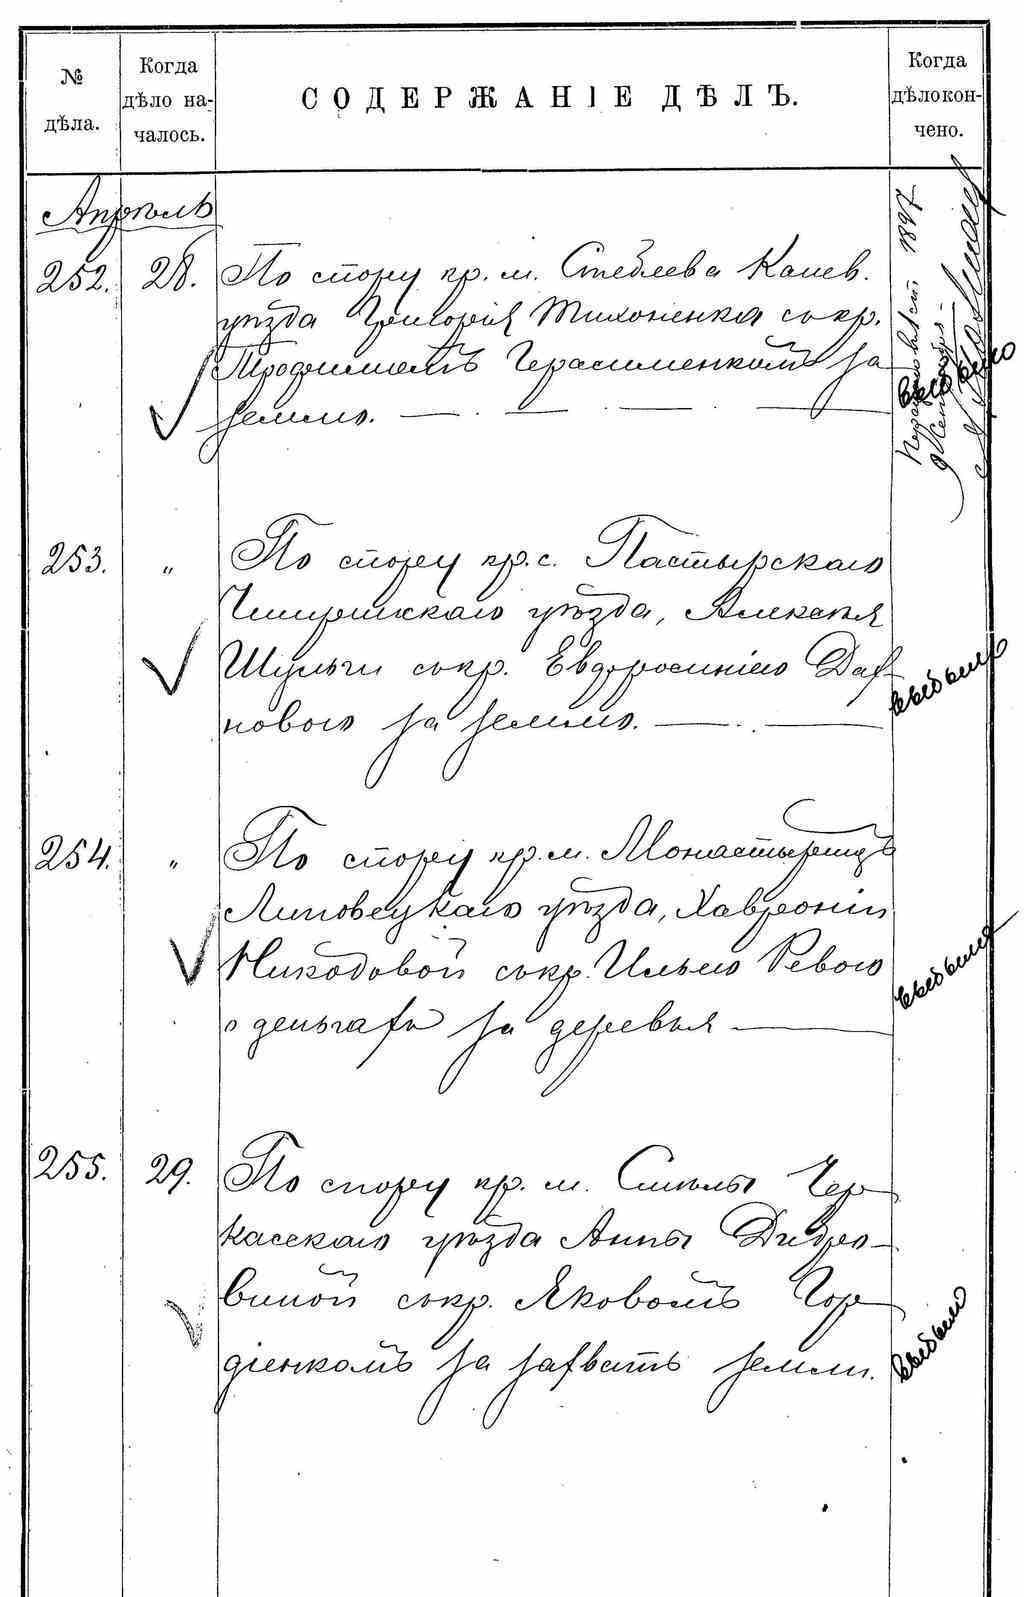 № дѣла.
Когда дѣло на-
чалось.
СОДЕРЖАНІЕ ДѢЛЪ.
Когда
дѣло кон-
чено.
Апрѣль
252. 28. По спору кр. м. Стеблева Канев.
уѣзда Григорія Тихоненка съ кр.
Трофимомъ Герасименкомъ за
землю.
1897
выбыло
253. " По спору кр. с. Пастырскаго
Чигиринскаго уѣзда, Алексѣя
Шульги съ кр. Евфросиніею
новою за землю.
выбыло
254. " По спору кр. м. Монастырищъ
Липовецкаго уѣзда, Хавроніи
Никодовой съ кр. Ильею Ревою
о деньгахъ за деревья
выбыло
255. 29. По спору кр. м. Смѣлы Чер-
касскаго уѣзда Анны
виной съ кр. Яковомъ Гор-
діенкомъ за захватъ земли.
выбыло